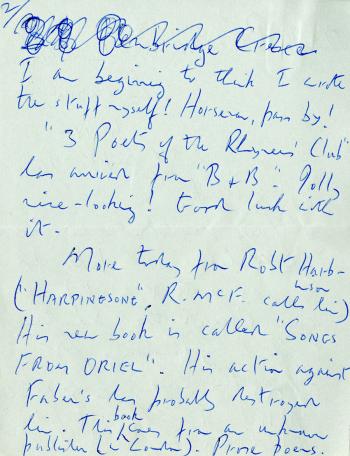 2/
I am beginning to think I wrote
the stuff myself! Horseman, pass by!
"3 Poets of the Rhymers' Club"
has arrived from "B & B". Jolly
nice-looking! Good luck with
it.
More today from Robt Harb-
inson
("HARPINESONE", R. McF. calls him)
His new book is called "SONGS
FROM ORIEL". His action against
Faber's has probably destroyed
him. This book comes from an unknown
publisher (in London). Prose poems.